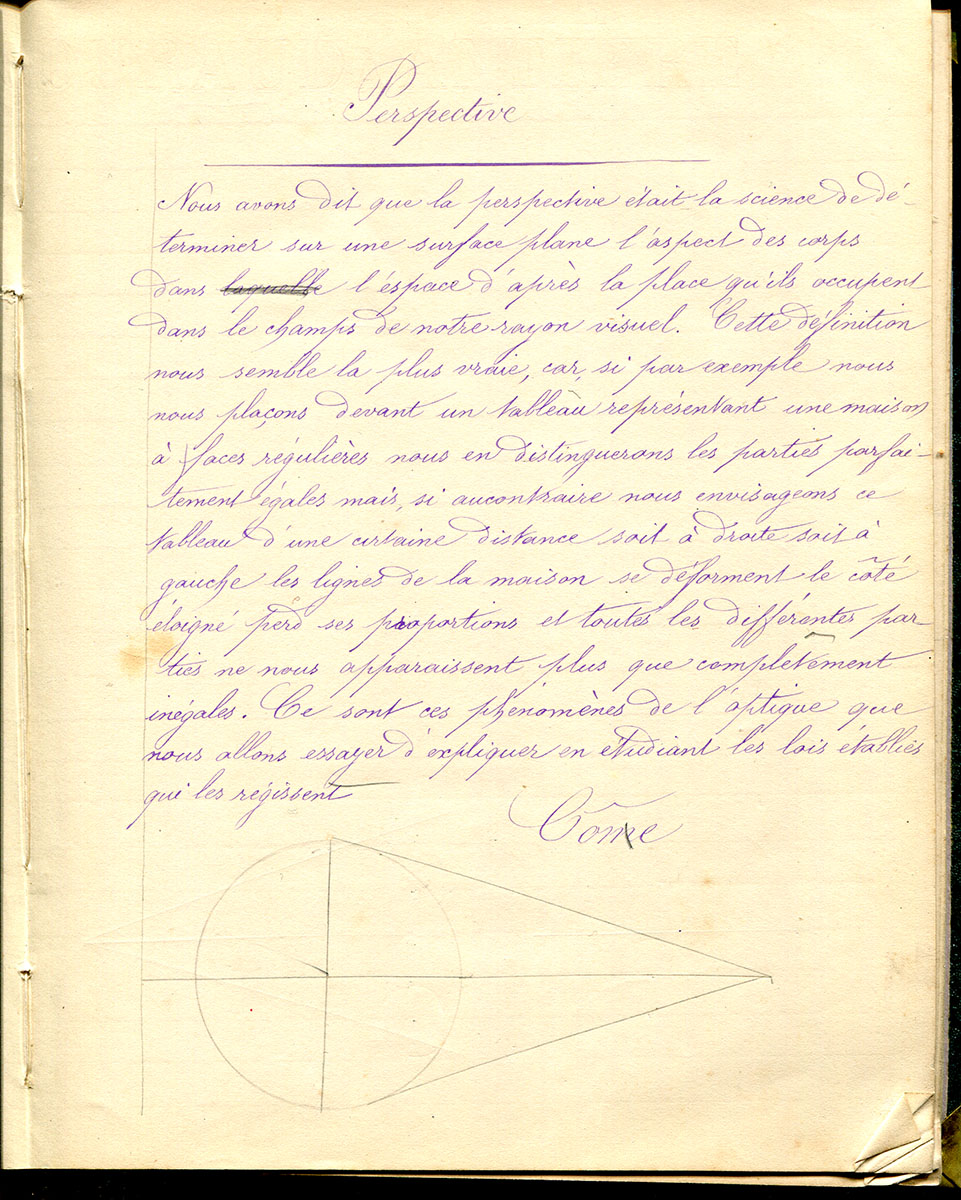 Perspective
Nous avons dit que la perspective était la science de dé-
terminer sur une surface plane l'aspect des corps
dans laquelle l'éspace d'après la place qu'ils occupent
dans le champs de notre rayon visuel. Cette définition
nous semble la plus vraie, car, si par exemple nous
nous plaçons devant un tableau représentant une maison
à faces régulières nous en distinguerons les parties parfai-
tement égales mais, si aucontraire nous envisageons ce
tableau d'une certaine distance soit à droite soit à
gauche les lignes de la maison se déforment le côté
éloigné perd ses proportions et toutes les différentes par-
ties ne nous apparaissent plus que complètement
inégales. Ce sont ces phénomènes de l'optique que
nous allons essayer d'expliquer en étudiant les lois établies
qui les régissent
Côme